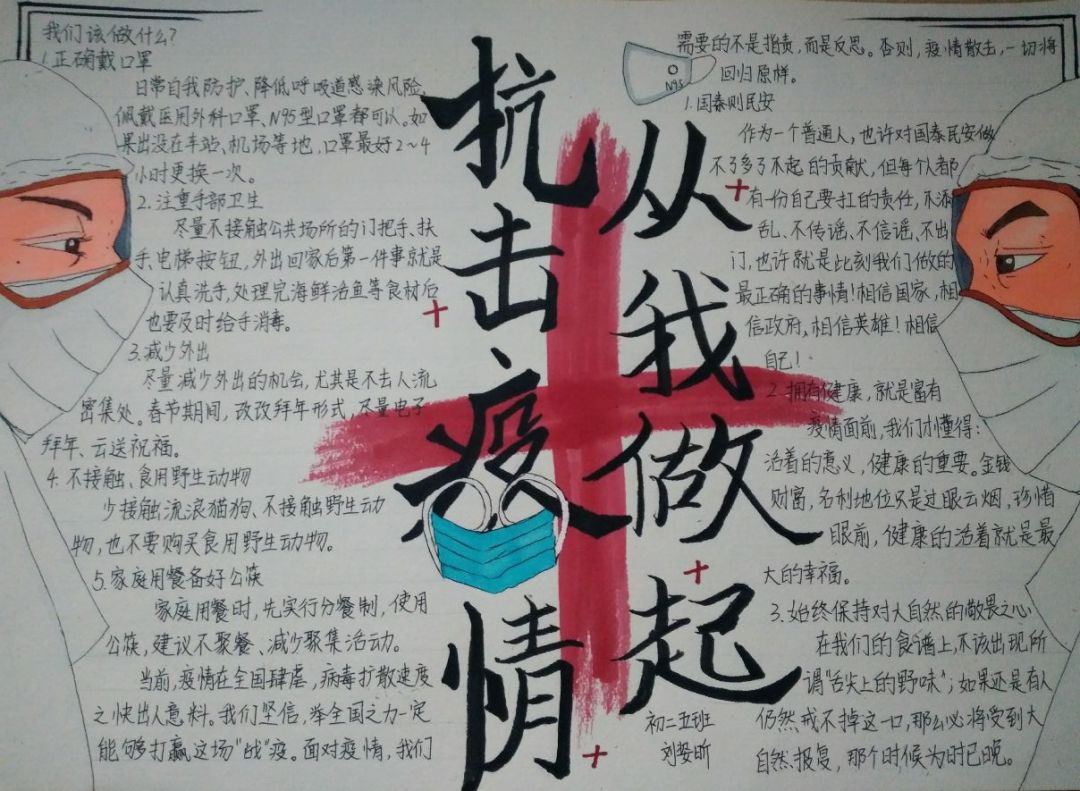 我们该做什么?
1.正确戴口罩
日常自我防护、降低呼吸道感染风险,
佩戴医用外科口罩、N95型口罩都可以。如
果出没在车站、机场等地,口罩最好2~4
小时更换一次。
2.注重手部卫生
尽量不接触公共场所的门把手、扶
手、电梯按钮,外出回家后第一件事就是
认真洗手,处理完海鲜活鱼等食材后
也要及时给手消毒。
3.减少外出
尽量减少外出的机会,尤其是不去人流
密集处。春节期间,改改拜年形式,尽量电子
拜年、云送祝福。
4.不接触、食用野生动物
少接触流浪猫狗、不接触野生动
物,也不要购买食用野生动物。
5.家庭用餐备好公筷
家庭用餐时,先实行分餐制,使用
公筷,建议不聚餐、减少聚集活动。
当前,疫情在全国肆虐,病毒扩散速度
之快出人意料。我们坚信,举全国之力一定
能够打赢这场"战"疫。面对疫情,我们
抗击疫情
从我做起
初二五班
刘 昕
N95
需要的不是指责,而是反思。否则,疫情散去,一切将
回归原样。
1.国泰则民安
作为一个普通人,也许对国泰民安做
不了多了不起的贡献,但每个人都
有一份自己要扛的责任,不添
乱、不传谣、不信谣、不出
门,也许就是此刻我们做的
最正确的事情!相信国家,相
信政府,相信英雄!相信
自己!
2.拥有健康,就是富有
疫情面前,我们才懂得:
活着的意义,健康的重要。金钱
财富,名利地位只是过眼云烟,珍惜
眼前,健康的活着就是最
大的幸福。
3.始终保持对大自然的敬畏之心
在我们的食谱上,不该出现所
谓"舌尖上的野味";如果还是有人
仍然戒不掉这一口,那么必将受到大
自然报复,那个时候为时已晚。